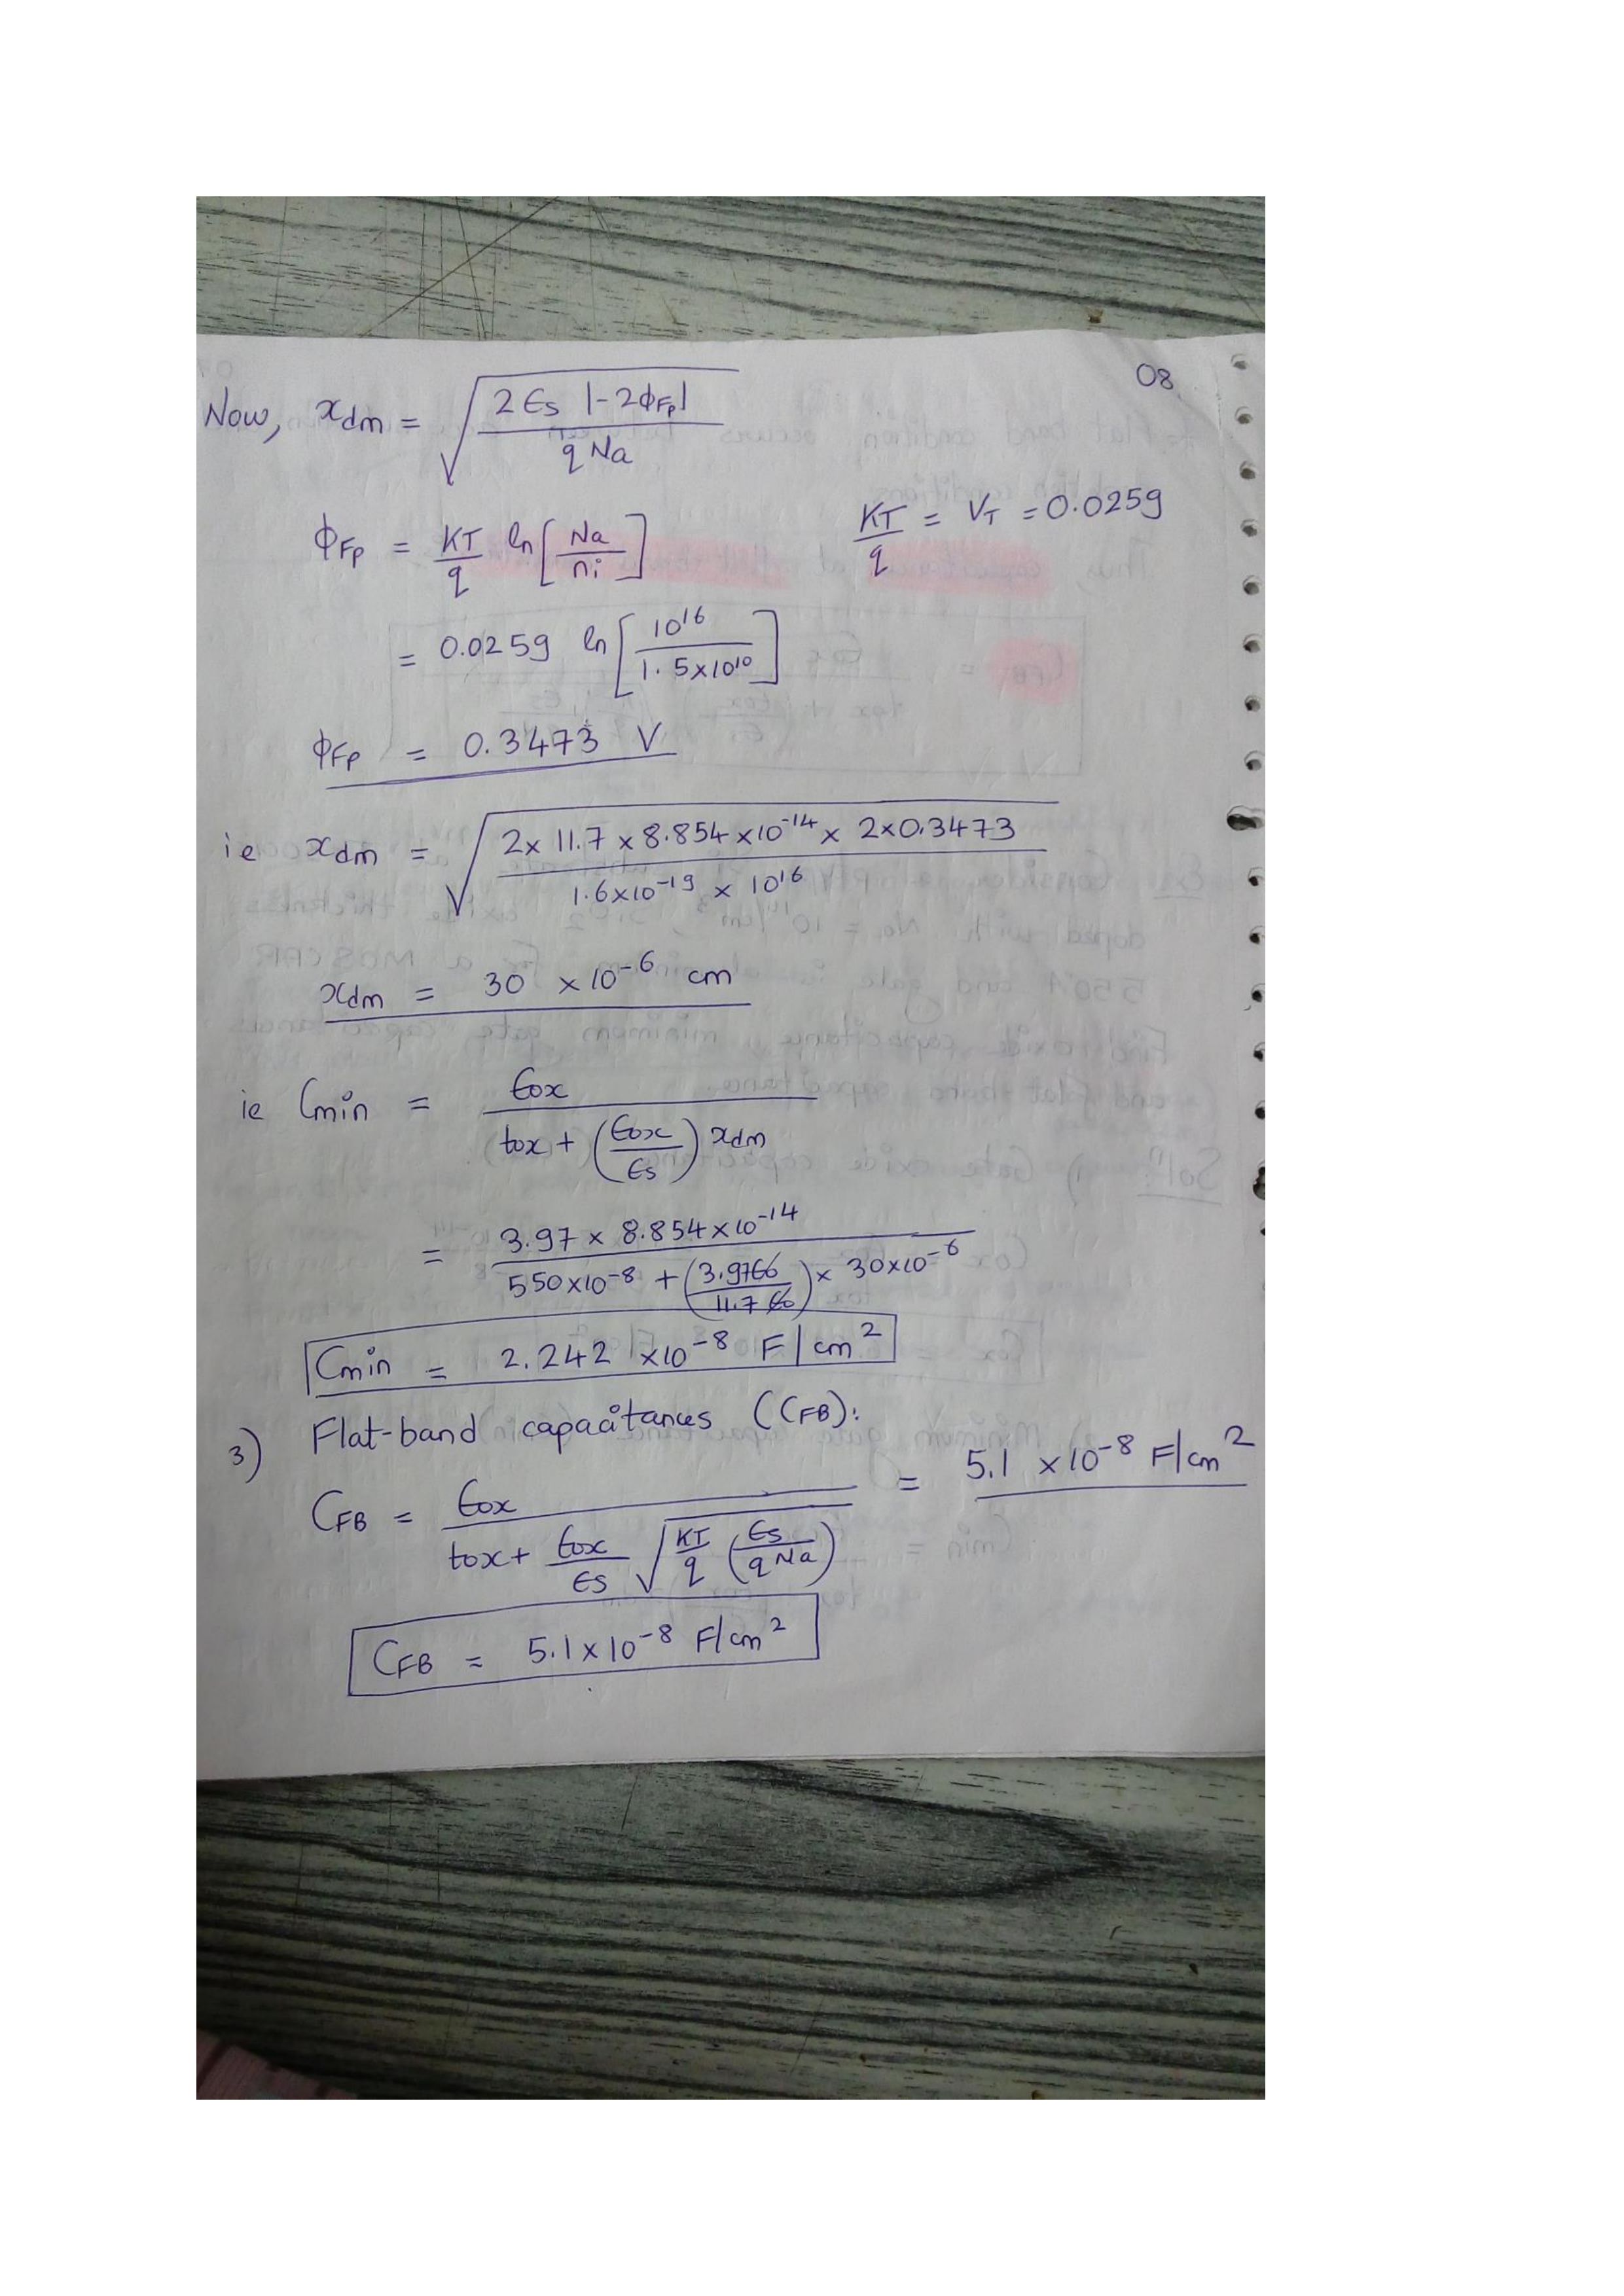 08
Now, xdm = √(2 ϵs |-2ϕFp| / q Na)
ϕFp = KT/q ln[Na/ni]    KT/q = VT = 0.0259
= 0.0259 ln[10¹⁶ / 1.5×10¹⁰]
ϕFp = 0.3473 V
ie xdm = √(2× 11.7 × 8.854 ×10⁻¹⁴ × 2×0.3473 / 1.6×10⁻¹⁹ × 10¹⁶)
xdm = 30 ×10⁻⁶ cm
ie Cmin = ϵox / tox + (ϵox/ϵs) xdm
= 3.97 × 8.854 ×10⁻¹⁴ / 550×10⁻⁸ + (3.97ϵ0 / 11.7ϵ0) × 30×10⁻⁶
Cmin = 2.242 ×10⁻⁸ F/cm²
3) Flat-band capacitances (CFB):
CFB = ϵox / tox + ϵox/ϵs √(KT/q (ϵs/qNa)) = 5.1 ×10⁻⁸ F/cm²
CFB = 5.1×10⁻⁸ F/cm²